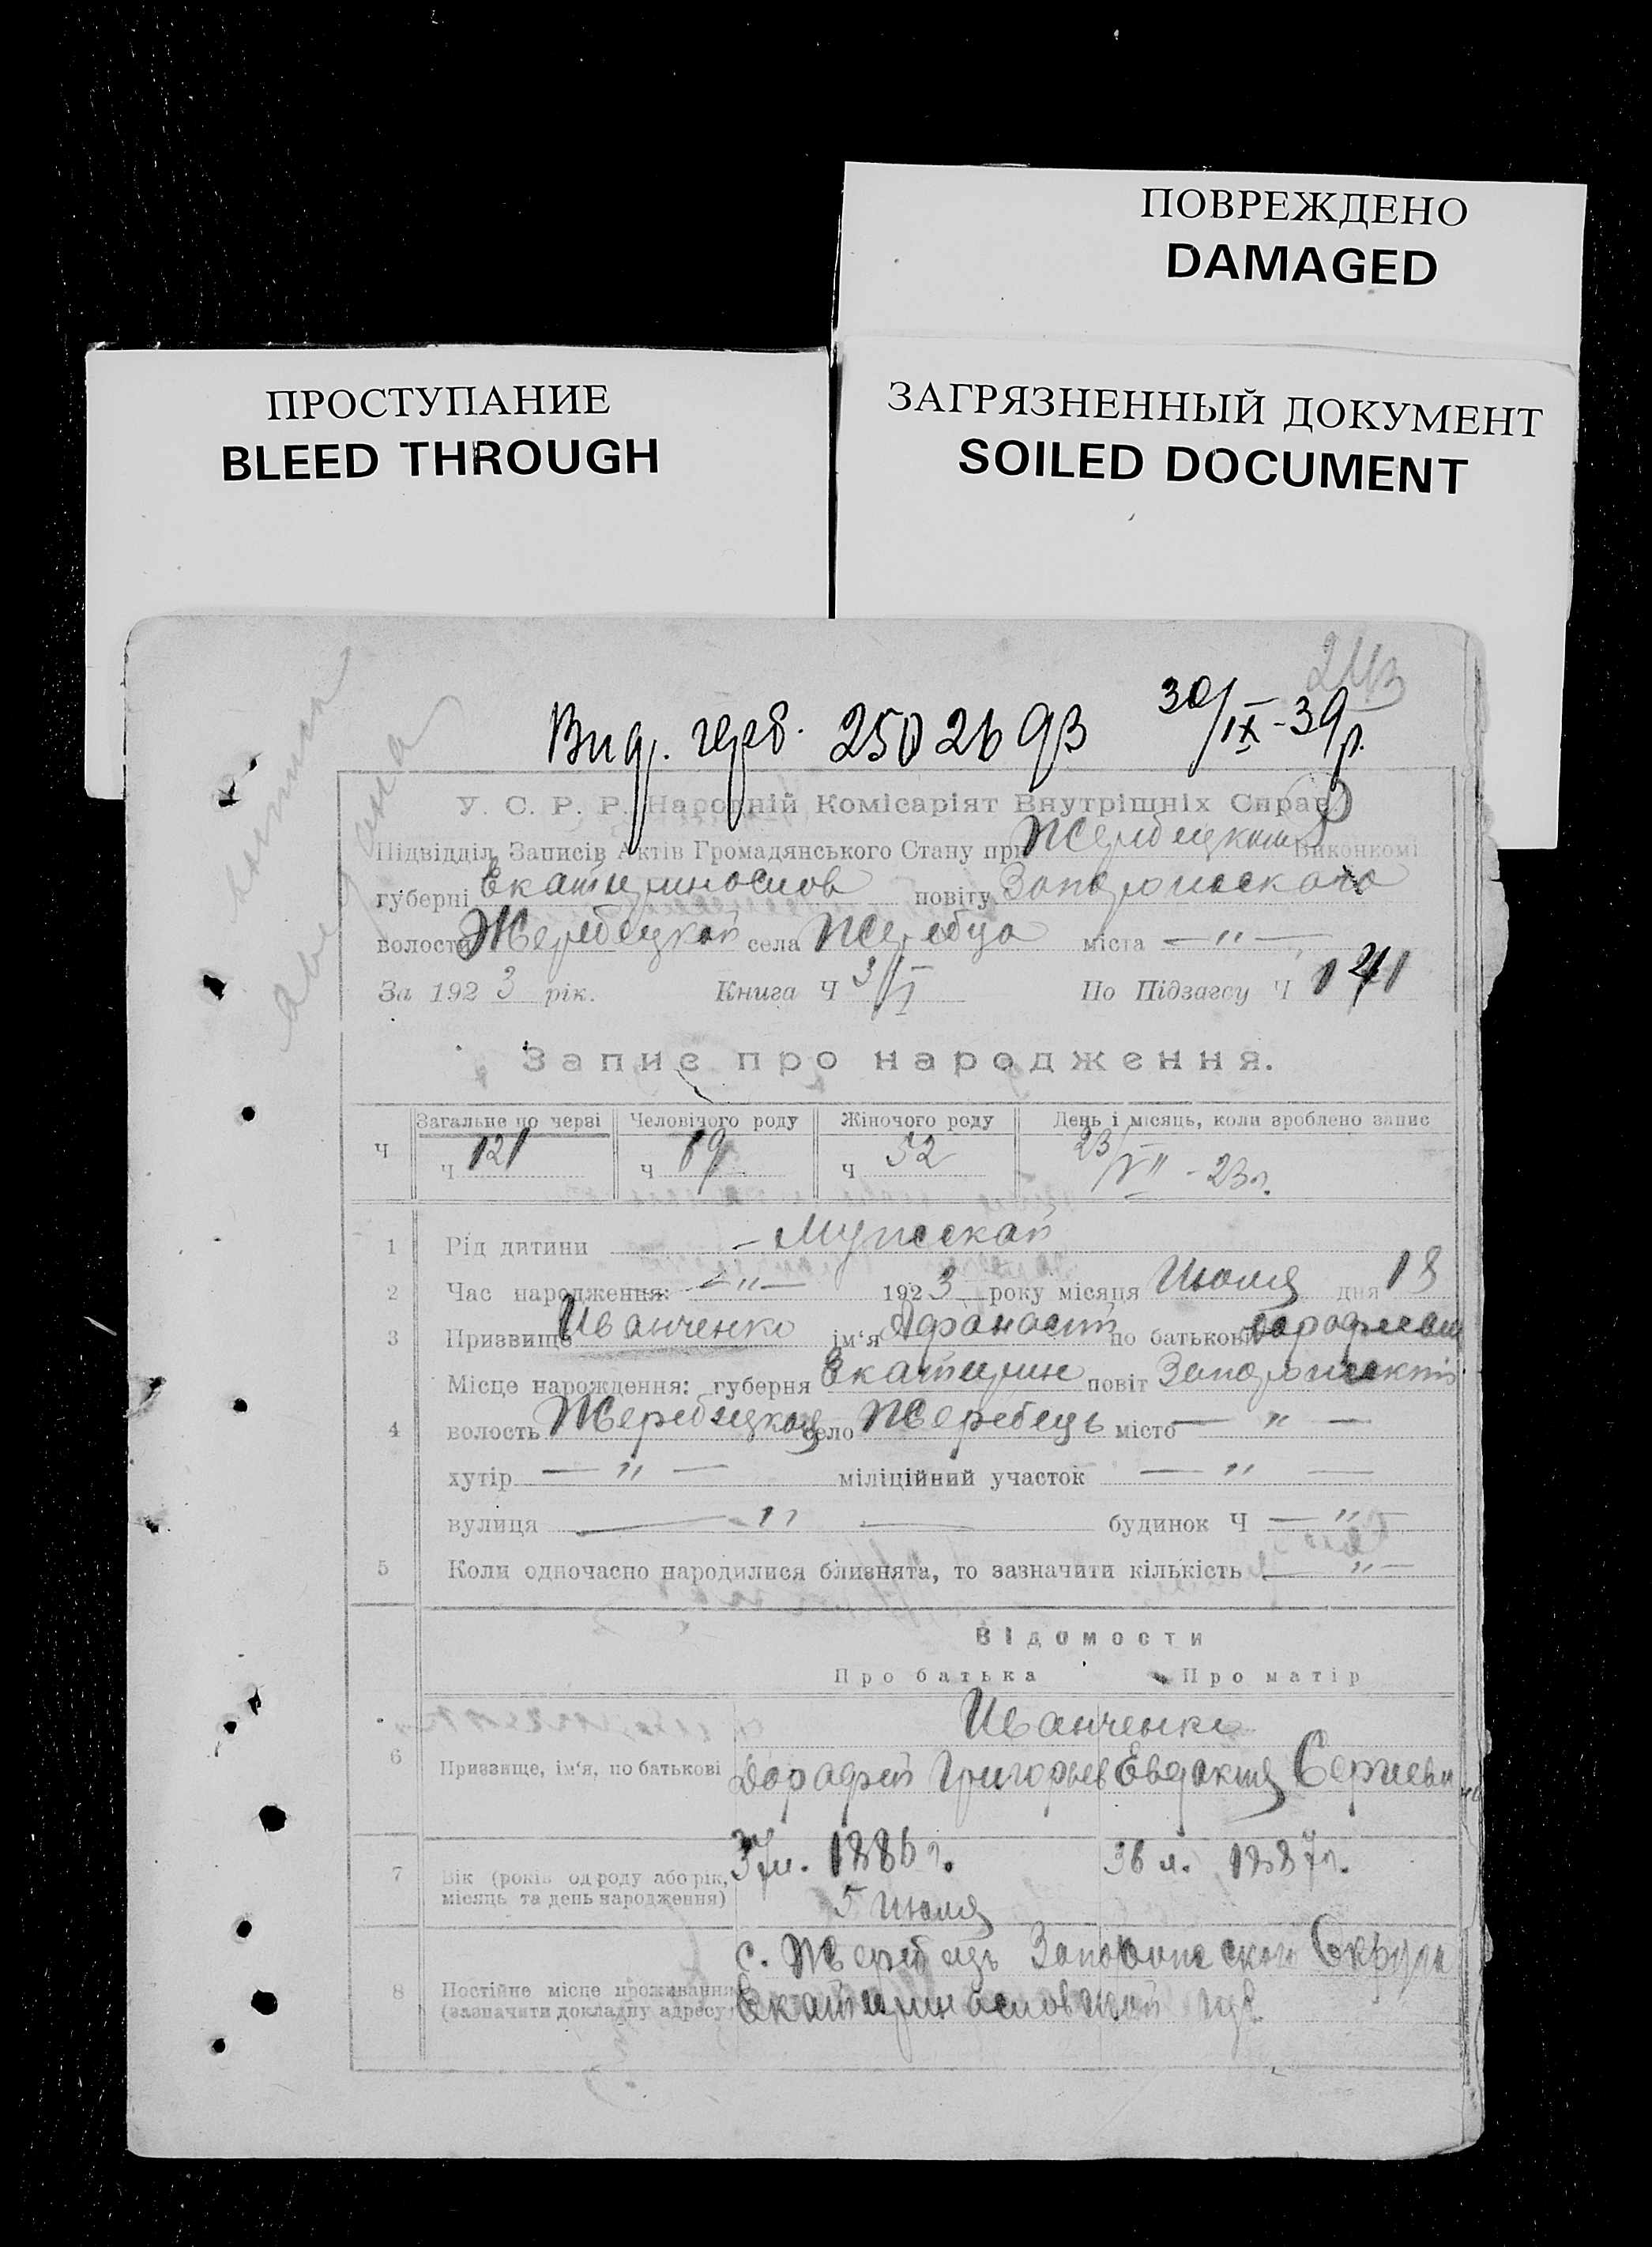 ПОВРЕЖДЕНО
DAMAGED
ПРОСТУПАНИЕ
BLEED THROUGH
ЗАГРЯЗНЕННЫЙ ДОКУМЕНТ
SOILED DOCUMENT
Вид. герб. 2502693 30/IX-39р.
У. С. Р. Р. Народній Комісаріят Внутрішніх Справ
Підвідділ Записів Актів Громадянського Стану при Жеребецком Виконкомі
губерні Екатеринослов повіту Запорожскаго
волости Жеребецкой села Жеребца міста — " —
За 1923 рік. Книга Ч 3/I По Підзагсу Ч
Запис про народження.
Загальне по черзі Человічого роду Жіночого роду День і місяць, коли зроблено запис
Ч Ч 121 Ч 69 Ч 52 23/VII - 23г.
1 Рід дитини — Мужской
2 Час народження: — " — 1923 року місяця Июля дня 18
3 Призвище Иванченко ім‘я Афанасий по батькові Дорофеевич
Місце нарождення: губерня Екатерин повіт Запорожский
4 волость Жеребецкая село Жеребець місто — " —
хутір — " — міліційний участок — " —
вулиця — " — будинок Ч — " —
5 Коли одночасно народилися близнята, то зазначити кількість — " —
Відомости
Про батька Про матір
Иванченко
6 Призвище, ім‘я, по батькові Дорофей Григорьев Евдокия Сергиевн
7 Вік (років од роду або рік, 37л. 1886г. 36 л. 1887г.
місяць та день народження) 5 Июля
с. Жеребець Запорожского Округа
8 Постійне місце проживання
(зазначити докладну адресу) Екатеринославской губ.